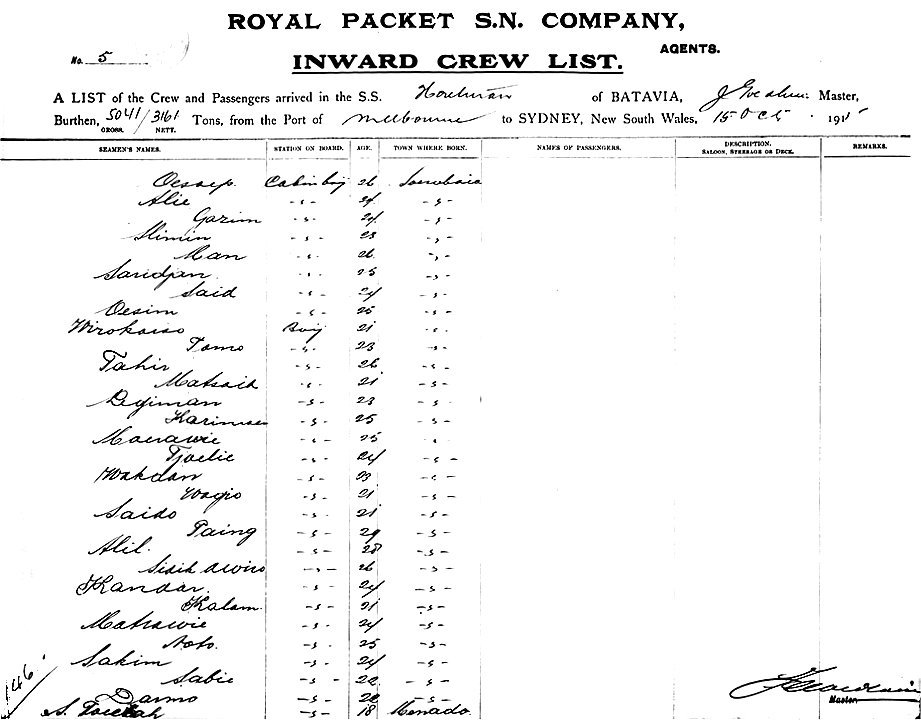 ROYAL PACKET S.N. COMPANY,
AGENTS.
No. 5
INWARD CREW LIST.
A LIST of the Crew and Passengers arrived in the S.S. Houtman of BATAVIA, Master,
Burthen, 5041/3161 Tons, from the Port of Melbourne to SYDNEY, New South Wales, 15 Oct 191
GROSS. NETT.
SEAMEN'S NAMES. STATION ON BOARD. AGE. TOWN WHERE BORN. NAMES OF PASSENGERS. DESCRIPTION. SALOON, STEERAGE OR DECK. REMARKS.
Oessep. Cabin boy 26 Soerabaia
Alie -"- 24 -"-
Garim -"- 24 -"-
Slimin -"- 23 -"-
Man -"- 26 -"-
Saridjan -"- 25 -"-
Said -"- 24 -"-
Oesim -"- 25 -"-
Wirokaiso Boy 21 -"-
Tomo -"- 23 -"-
Tahir -"- 26 -"-
Matsaid -"- 21 -"-
-"- 23 -"-
-"- 25 -"-
Moerawie -"- 25 -"-
Tjoelie -"- 24 -"-
Wakdan -"- 23 -"-
Wagio -"- 21 -"-
Saido -"- 21 -"-
Paing -"- 29 -"-
Alil. -"- 28 -"-
-"- 26 -"-
Kandar. -"- 24 -"-
Kalam. -"- 21 -"-
Matrawie -"- 24 -"-
Noto. -"- 25 -"-
Sakim -"- 24 -"-
146.
Sabie -"- 22 -"-
Darmo -"- 20 -"-
Master
S. -"- 18 Menado.